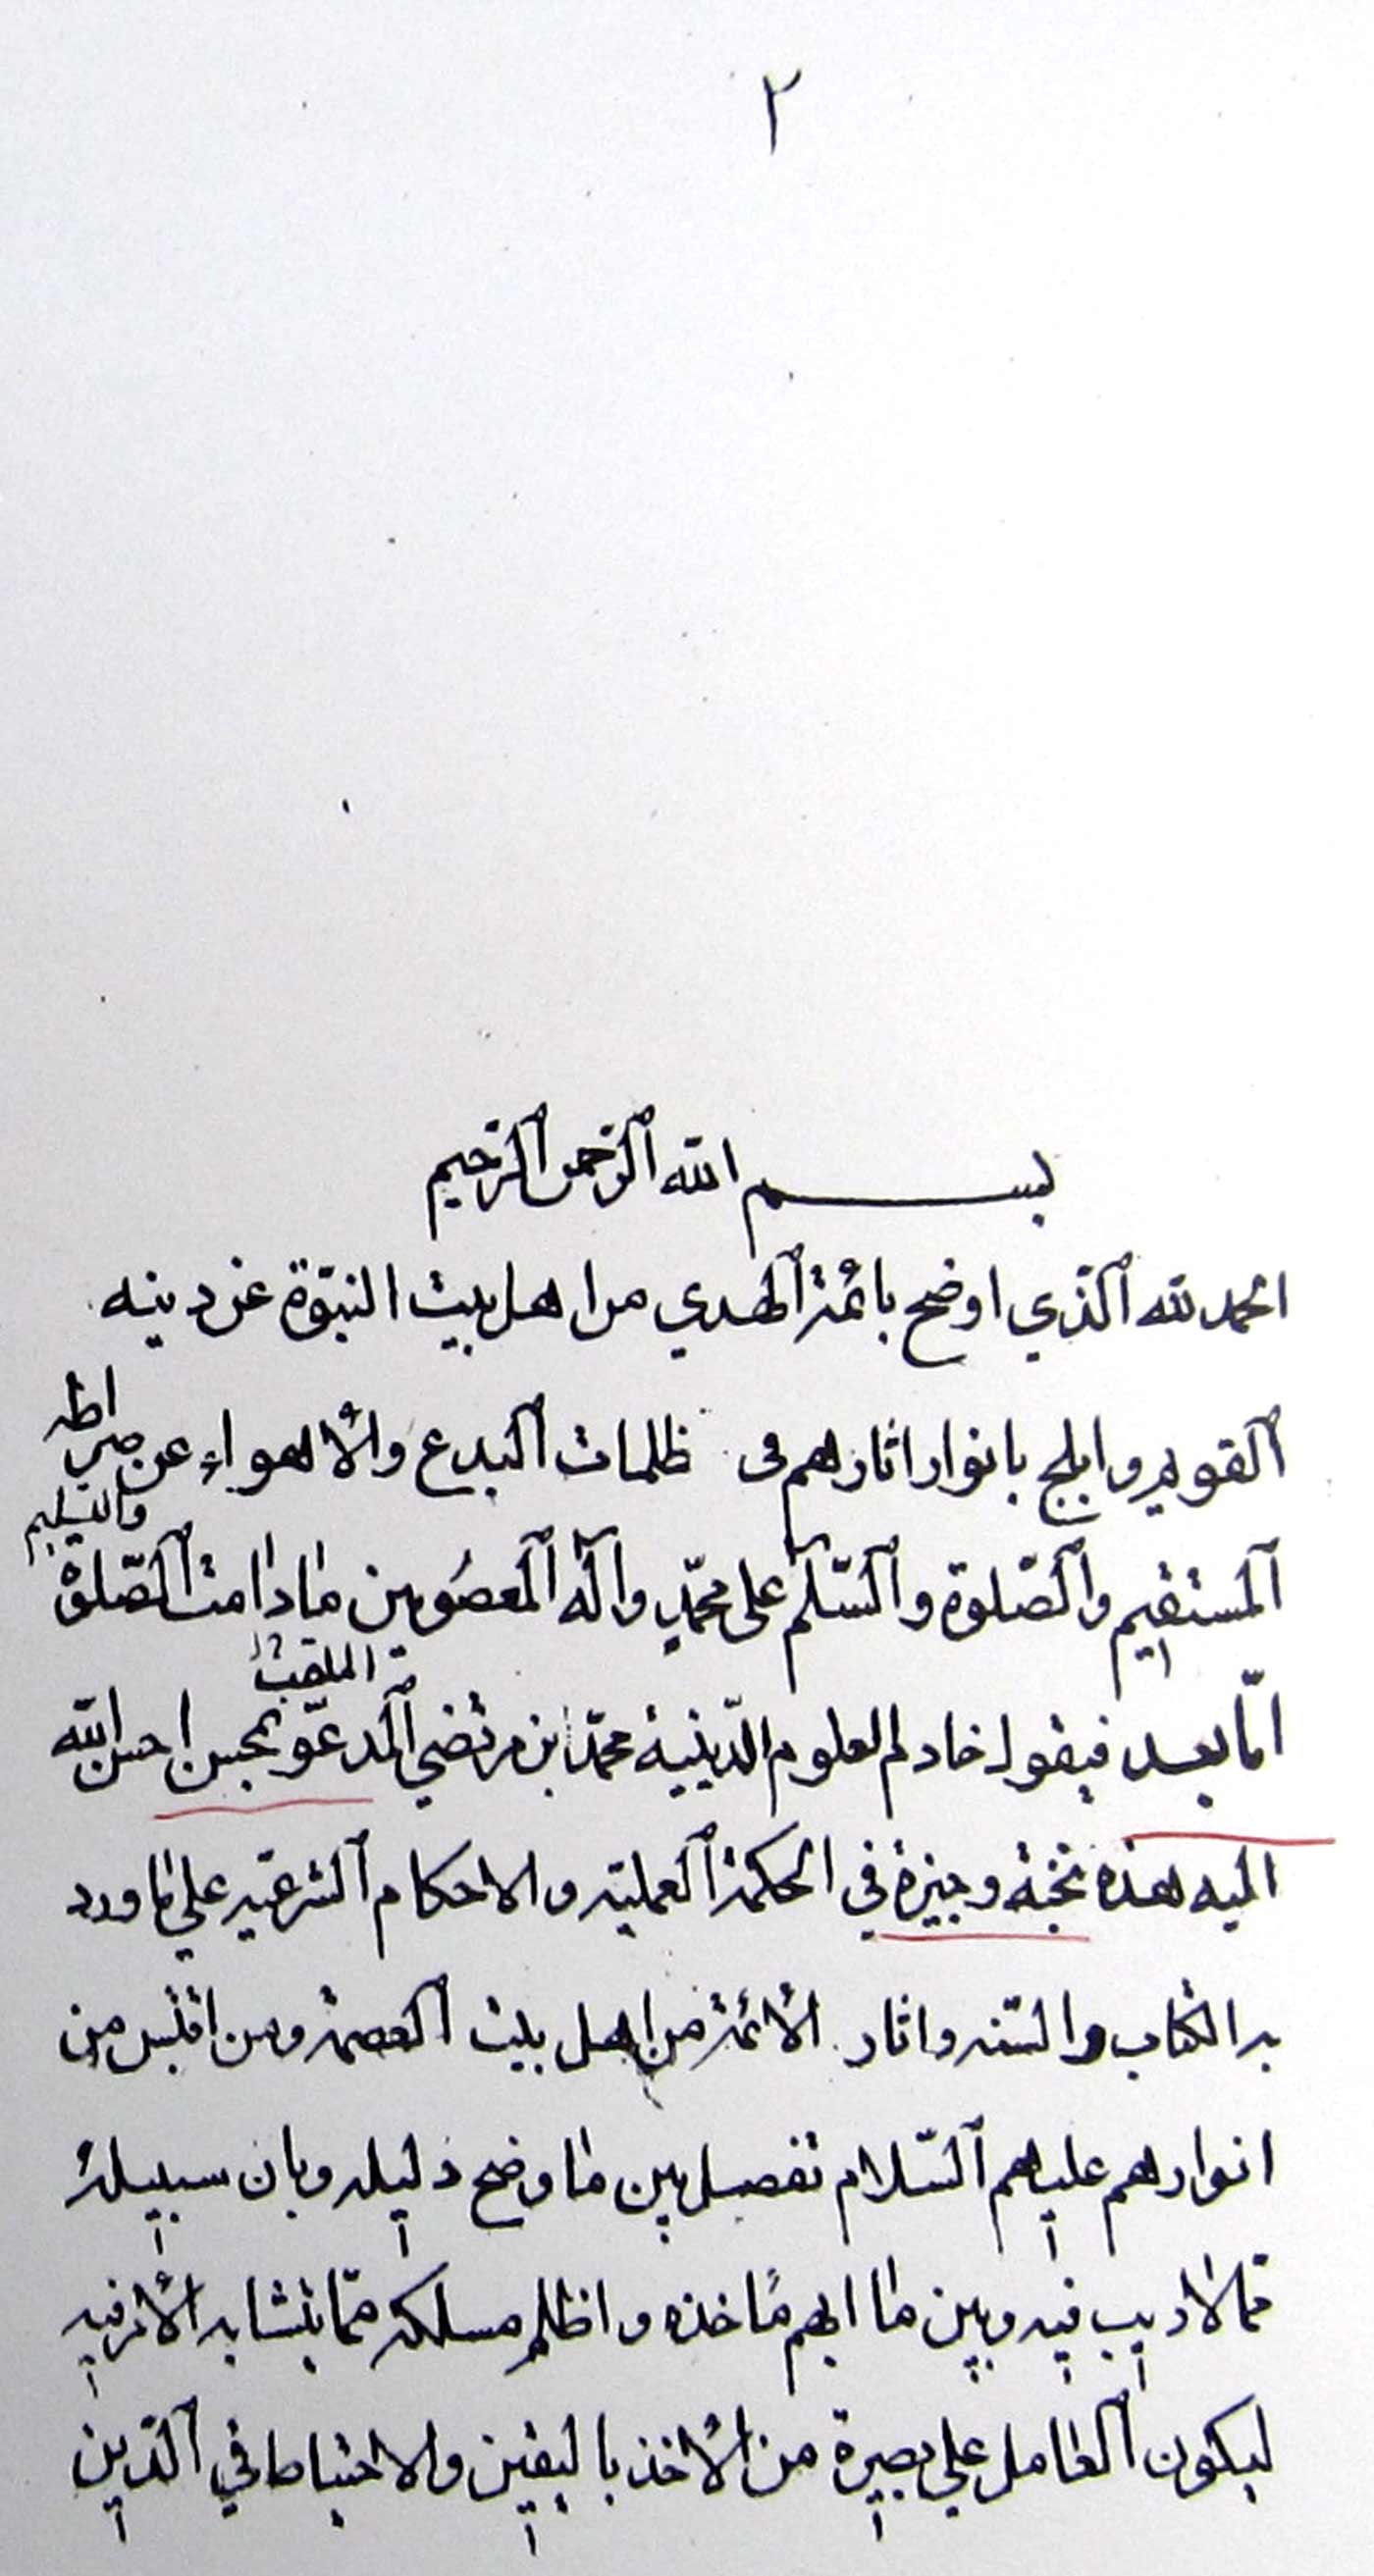 ٢
بسم الله الرحمن الرحيم
الحمد لله الذي اوضح بائمة الهدي من اهل بيت النبوة عن دينه
القويم وابلج بانوار اثارهم فى ظلمات البدع والأهواء عن صراطه
المستقيم والصّلوة والسّلم على محمّد واله المعصومين مادامت الصّلوة والتسليم
امّا بعد فيقول خادم العلوم الدّينية محمّد ابن مرتضي المدعوّ بمحسن احسن الله
الملقب
اليه هذه نخبة وجيزة في الحكمة العملية والاحكام الشرعيه علي ما ورد
به الكتاب والسّنه واثار الأئمة من اهل بيت العصمة ومن اقتبس من
انوارهم عليهم السّلام تفصل بين ما وضح دليله وبان سبيله
ممّا لا ريب فيه وبين ما ابهم مأخذه واظلم مسلكه ممّا يتشابه الأمر فيه
ليكون العامل علي بصيرة من الأخذ باليقين والاحتياط في الدّين